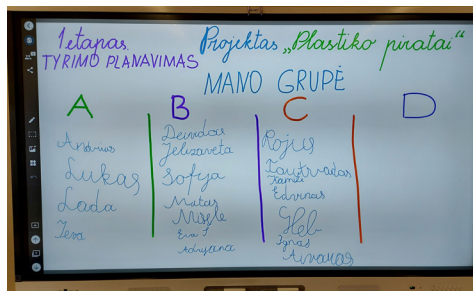 1 etapas.
TYRIMO PLANAVIMAS
Projektas „Plastiko piratai“
MANO GRUPĖ
A
Andrius
Lukas
Lada
Ieva
B
Deividas
Jelizaveta
Sofija
Matas
Misele
Eva S
Adrijana
C
Rojus
Tautvadas
Kamilė
Edvinas
Gleb
Ignas
Aivaras
D